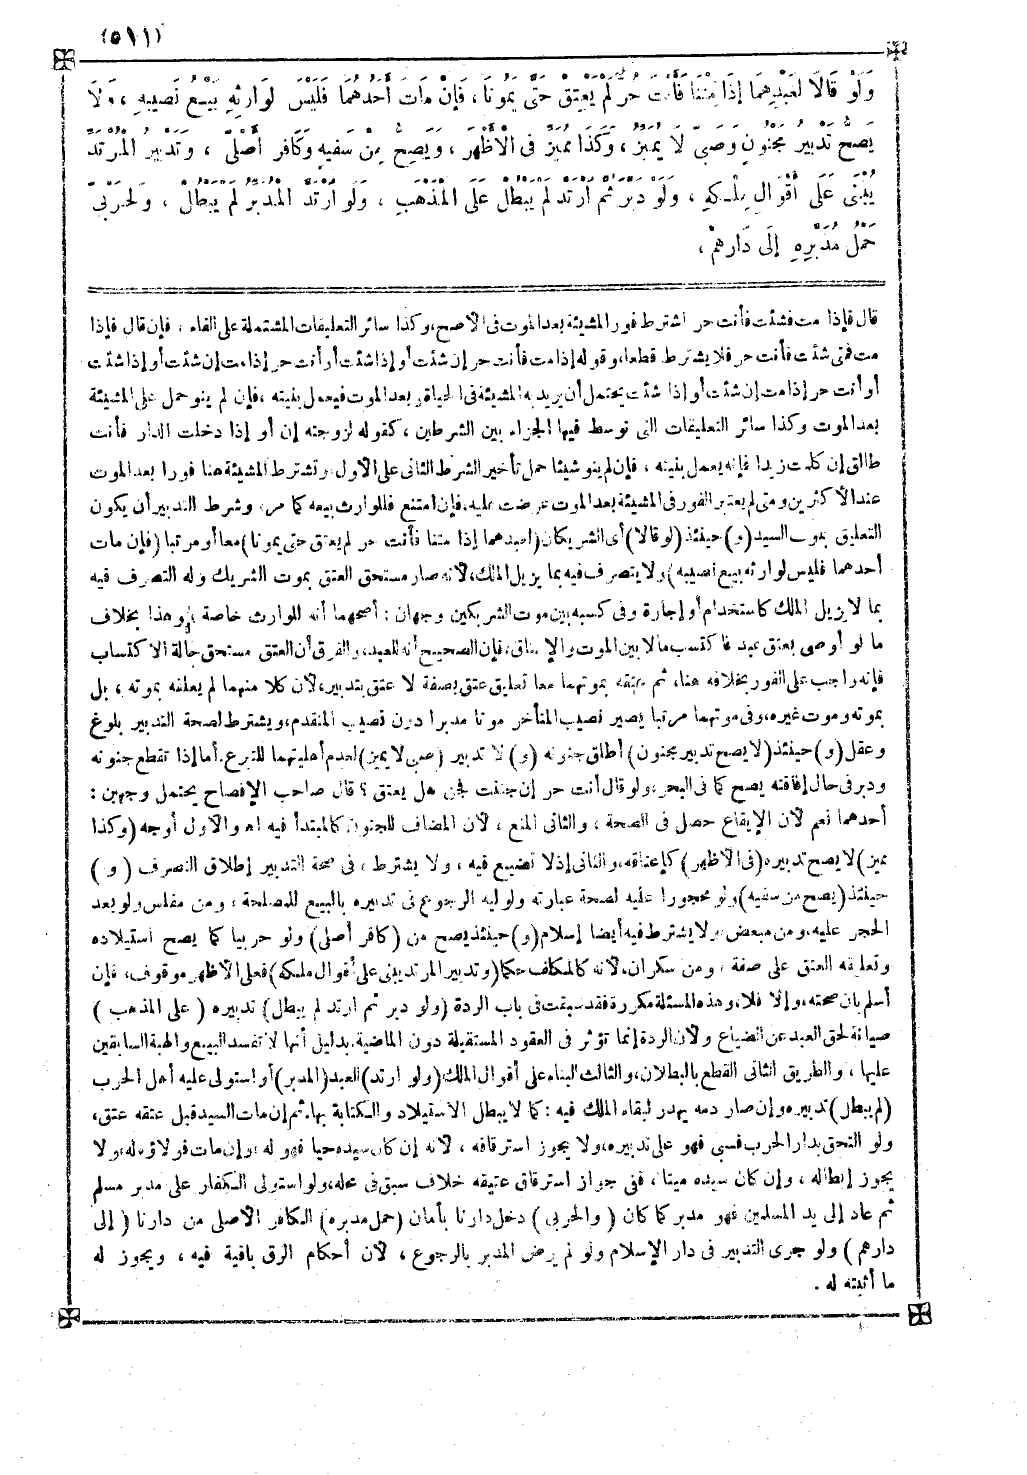 (٥١١)
وَلَوْ قَالَا لِعَبْدِهِمَا إِذَا مِتْنَا فَأَنْتَ حُرٌّ لَمْ يَعْتِقْ حَتَّى يَمُوتَا ، فَإِنْ مَاتَ أَحَدُهُمَا فَلَيْسَ لِوَارِثِهِ بَيْعُ نَصِيبِهِ ، وَلَا
يَصِحُّ تَدْبِيرُ مَجْنُونٍ وَصَبِيٍّ لَا يُمَيِّزُ ، وَكَذَا مُمَيِّزٌ فِى الْأَظْهَرِ ، وَيَصِحُّ مِنْ سَفِيهٍ وَكَافِرٍ أَصْلِىٍّ ، وَتَدْبِيرُ الْمُرْتَدِّ
يُبْنَى عَلَى أَقْوَالِ مِلْكِهِ ، وَلَوْ دَبَّرَ ثُمَّ ارْتَدَّ لَمْ يَبْطُلْ عَلَى الْمَذْهَبِ ، وَلَوِ ارْتَدَّ الْمُدَبَّرُ لَمْ يَبْطُلْ ، وَلِحَرْبِىٍّ
حَمْلُ مُدَبَّرِهِ إِلَى دَارِهِمْ ،
قال فإذا مت فشئت فأنت حر اشترط فور المشيئة بعد الموت فى الأصح، وكذا سائر التعليقات المشتملة على الفاء ، فإن قال فإذا
مت فمتى شئت فأنت حر فلا يشترط قطعا، وقوله إذا مت فأنت حر إن شئت أو إذا شئت أو أنت حر إذا مت إن شئت أو إذا شئت
أو أنت حر إذا مت إن شئت أو إذا شئت يحتمل أن يريد به المشيئة فى الحياة وبعد الموت فيعمل بنيته ، فإن لم ينو حمل على المشيئة
بعد الموت وكذا سائر التعليقات التى توسط فيها الجزاء بين الشرطين ، كقوله لزوجته إن أو إذا دخلت الدار فأنت
طالق إن كلمت زيدا فإنه يعمل بنيته ، فإن لم ينو شيئا حمل تأخير الشرط الثانى على الاول، وتشترط المشيئة هنا فورا بعد الموت
عند الأكثرين ومتى لم يعتبر الفور فى المشيئة بعد الموت عرضت عليه، فإن امتنع فللوارث بيعه كما مر، وشرط التدبير أن يكون
التعليق بموت السيد (و) حينئذ (لو قالا) أى الشريكان (لعبدهما إذا متنا فأنت حر لم يعتق حتى يموتا) معا أو مرتبا (فإن مات
أحدهما فليس لوارثه بيع نصيبه) ولا يتصرف فيه بما يزيل الملك، لأنه صار مستحق العتق بموت الشريك وله التصرف فيه
بما لا يزيل الملك كاستخدام أو إجارة وفى كسبه بين موت الشريكين وجهان : أصحهما أنه للوارث خاصة ، وهذا بخلاف
ما لو أوصى بعتق عبد فاكتسب مالا بين الموت والإعتاق، فإن الصحيح أنه للعبد، والفرق أن العتق مستحق حالة الاكتساب
فإنه واجب على الفور بخلافه هنا، ثم عتقه بموتهما معا تعليق عتق بصفة لا عتق بتدبير، لأن كلا منهما لم يعلقه بموته ، بل
بموته وموت غيره، وفى موتهما مرتبا يصير نصيب المتأخر موتا مدبرا دون نصيب المتقدم، ويشترط لصحة التدبير بلوغ
وعقل (و) حينئذ (لا يصح تدبير مجنون) أطلق جنونه (و) لا تدبير (صبى لا يميز) لعدم أهليتهما للتبرع. أما إذا تقطع جنونه
ودبر فى حال إفاقته يصح كما فى البحر، ولو قال أنت حر إن جننت فجن هل يعتق ؟ قال صاحب الإفصاح يحتمل وجهين :
أحدهما نعم لأن الإيقاع حصل فى الصحة ، والثانى المنع ، لأن المضاف للجنون كالمبتدأ فيه اه والأول أوجه (وكذا
مميز) لا يصح تدبيره (فى الأظهر) كإعتاقه، والثانى إذلا تضييع فيه ، ولا يشترط ، فى صحة التدبير إطلاق التصرف (و)
حينئذ (يصح من سفيه) ولو محجورا عليه لصحة عبارته ولوليه الرجوع فى تدبيره بالبيع للمصلحة ، ومن مفلس ولو بعد
الحجر عليه، ومن مبعض، ولا يشترط فيه أيضا إسلام (و) حينئذ يصح من (كافر أصلى) ولو حربيا كما يصح استيلاده
وتعليقه العتق على صفة ، ومن سكران، لأنه كالمكلف حكما (وتدبير المرتد يبنى على أقوال ملكه) فعلى الأظهر موقوف، فإن
أسلم بان صحته، وإلا فلا، وهذه المسئلة مكررة فقد سبقت فى باب الردة (ولو دبر ثم ارتد لم يبطل) تدبيره ( على المذهب )
صيانة لحق العبد عن الضياع ولأن الردة إنما تؤثر فى العقود المستقبلة دون الماضية، بدليل أنها لا تفسد البيع والهبة السابقين
عليها ، والطريق الثانى القطع بالبطلان، والثالث البناء على أقوال الملك (ولو ارتد) العبد (المدبر) أو استولى عليه أهل الحرب
(لم يبطل) تدبيره وإن صار دمه يهدر لبقاء الملك فيه : كما لا يبطل الاستيلاد والكتابة بها، ثم إن مات السيد قبل عتقه عتق،
ولو التحق بدار الحرب فسبى فهو على تدبيره، ولا يجوز استرقاقه ، لأنه إن كان سيده حيا فهو له ، وإن مات فولاؤه له، ولا
يجوز إبطاله ، وإن كان سيده ميتا ، ففى جواز استرقاق عتيقه خلاف سبق فى محله، ولو استولى الكفار على مدبر مسلم
ثم عاد إلى يد المسلمين فهو مدبر كما كان ( والحربى ) دخل دارنا بأمان (حمل مدبره) الكافر الأصلى من دارنا ( إلى
دارهم ) ولو جرى التدبير فى دار الإسلام ولو لم يرض المدبر بالرجوع ، لأن أحكام الرق باقية فيه ، ويجوز له
ما أثبته له .